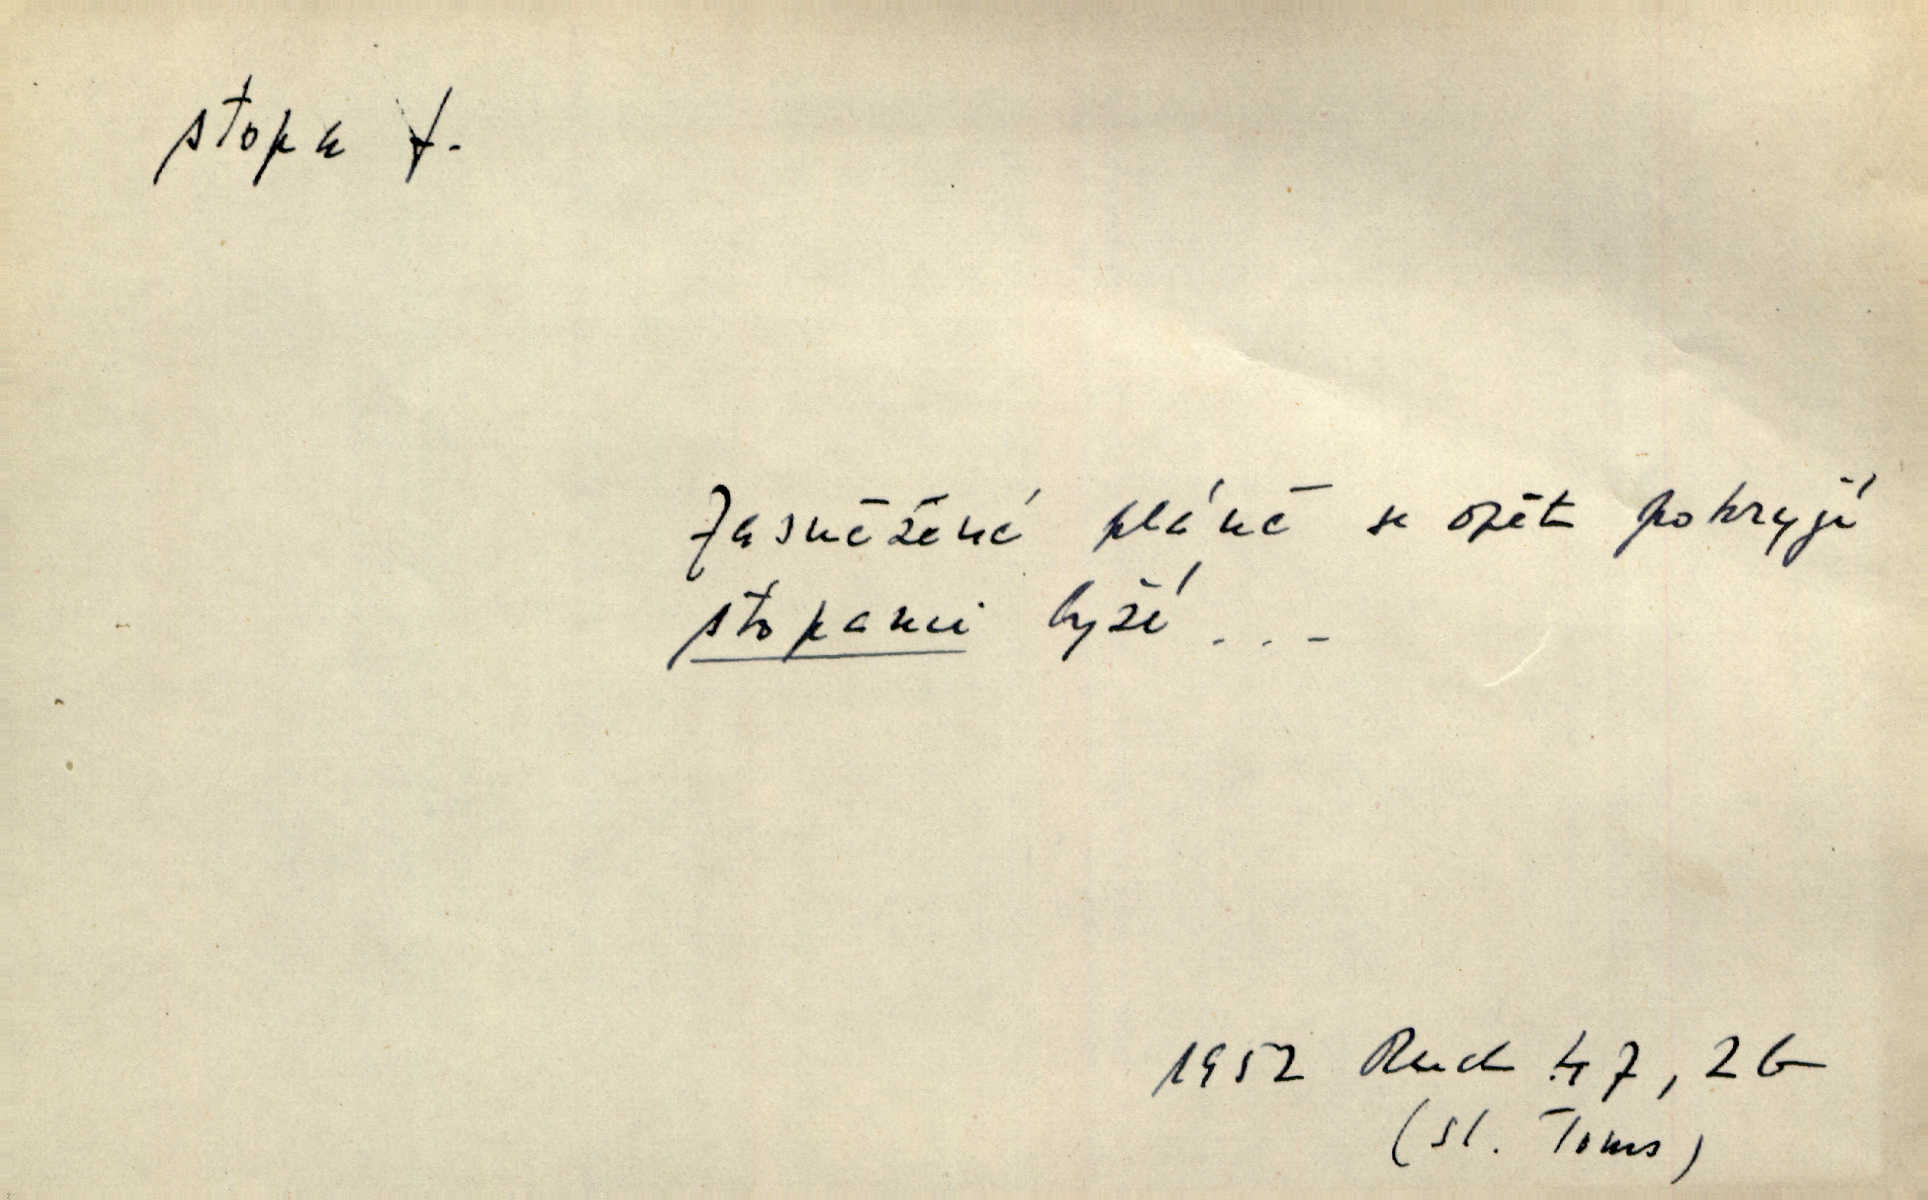 stopa f.
Zasněžené pláně se opět pokryjí
stopami lyží...
1952 Ruch 47, 2b
(sl. Toms)